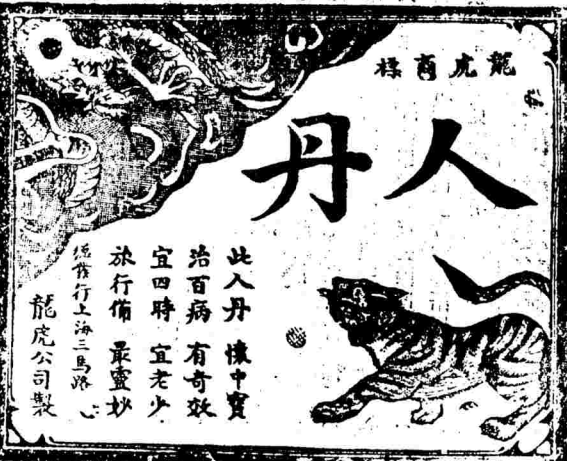 龍虎商標
人丹
此人丹 懷中寶
治百病 有奇效
宜四時 宜老少
旅行備 最靈妙
發行上海三馬路
龍虎公司製